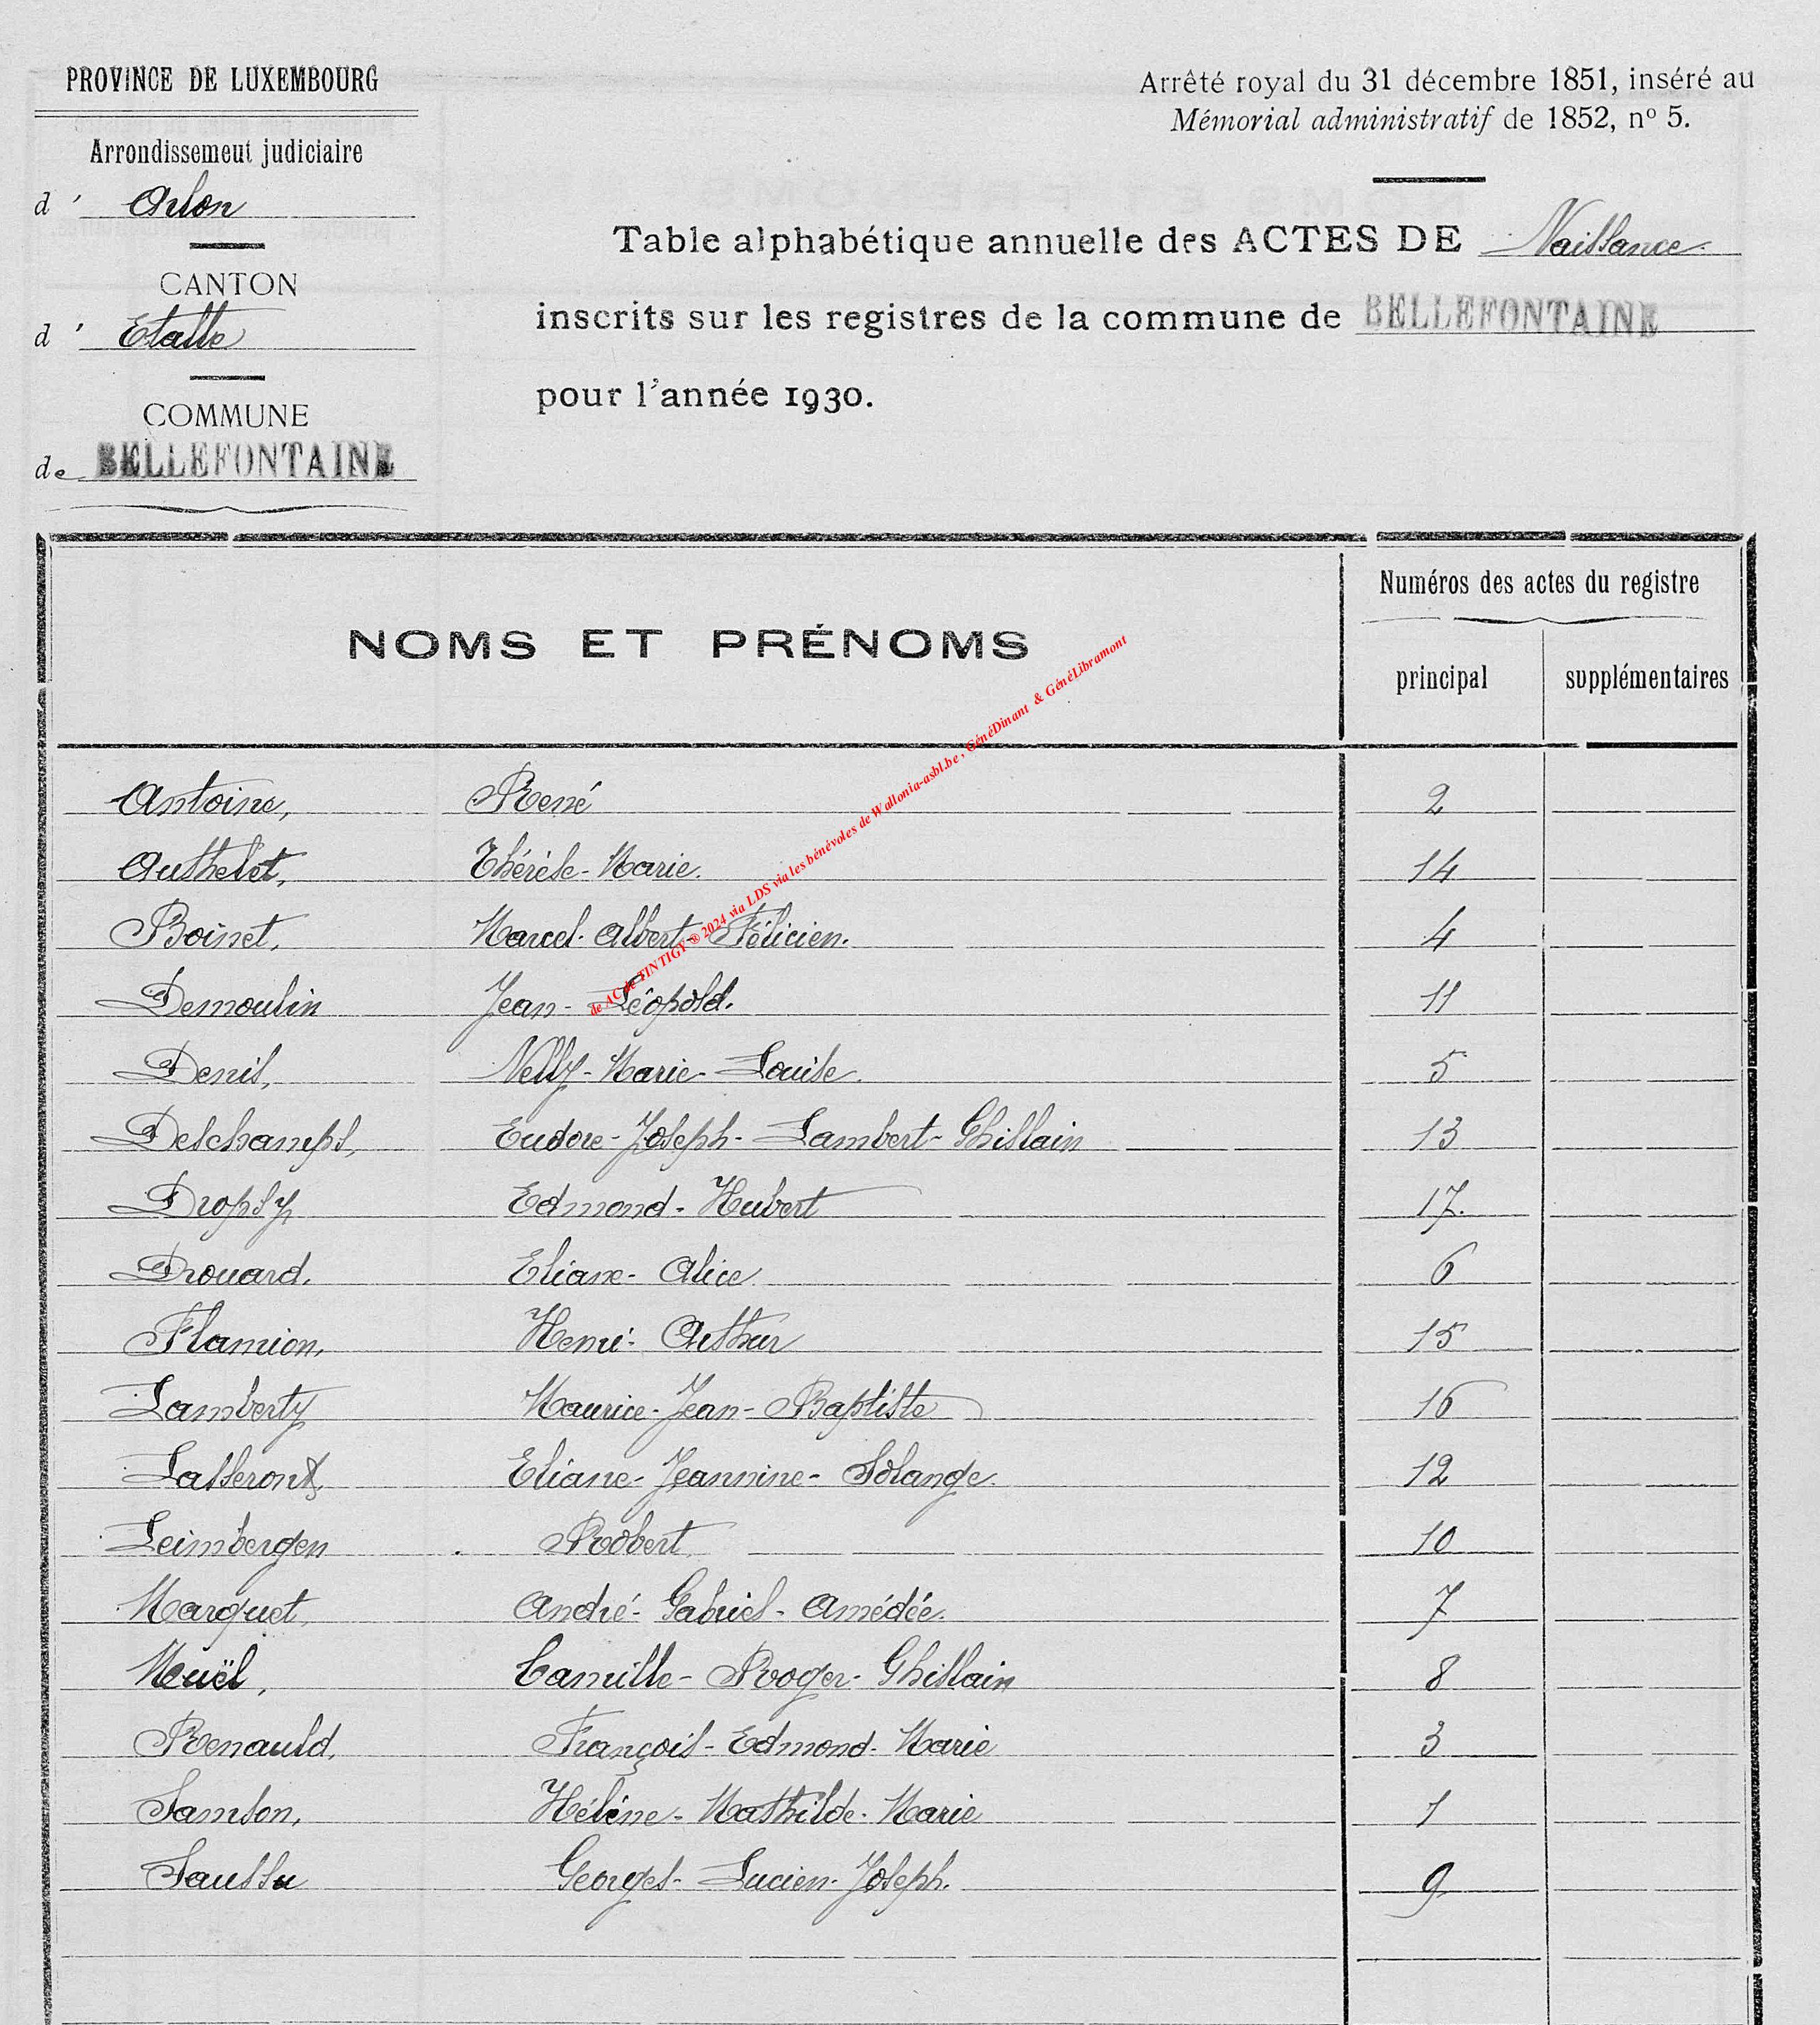 PROVINCE DE LUXEMBOURG
Arrondissement judiciaire
d' Arlon
CANTON
d' Etalle
COMMUNE
de BELLEFONTAINE
Arrêté royal du 31 décembre 1851, inséré au
Mémorial administratif de 1852, nº 5.
Table alphabétique annuelle des ACTES DE Naissance
inscrits sur les registres de la commune de BELLEFONTAINE
pour l'année 1930.
NOMS ET PRÉNOMS
Numéros des actes du registre
principal supplémentaires
de AC de TINTIGY ® 2024 via LDS via les bénévoles de Wallonia-asbl.be , GénéDinant & GénéLibramont
Antoine, René 2
Authelet, Thérèse-Marie. 14
Boinet, Marcel-Albert-Félicien. 4
Demoulin Jean-Léopold. 11
Denis, Nelly-Marie-Louise. 5
Deschamps, Eudore-Joseph-Lambert-Ghislain 13
Dropsy Edmond-Hubert 17.
Drouard. Eliane-Alice 6
Flamion, Henri-Arthur 15
Lamberty Maurice-Jean-Baptiste 16
Eliane-Jeannine-Solange. 12
Leimbergen Robert 10
Marquet André-Gabriel-Amédée. 7
Muël, Camille-Roger-Ghislain 8
Renauld, François-Edmond-Marie 3
Samson, Hélène-Mathilde-Marie 1
Saussu Georges-Lucien-Joseph. 9